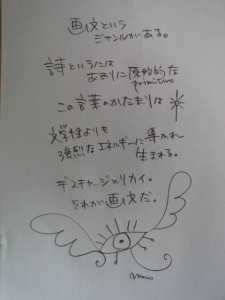 画文という
ジャンルがある。
詩というには
あまりに原始的な
primitivo
この言葉のかたまりは
文学性よりも
強烈なエネルギーに導かれ
生まれる。
デスキャージとリカイ。
それが画文だ。